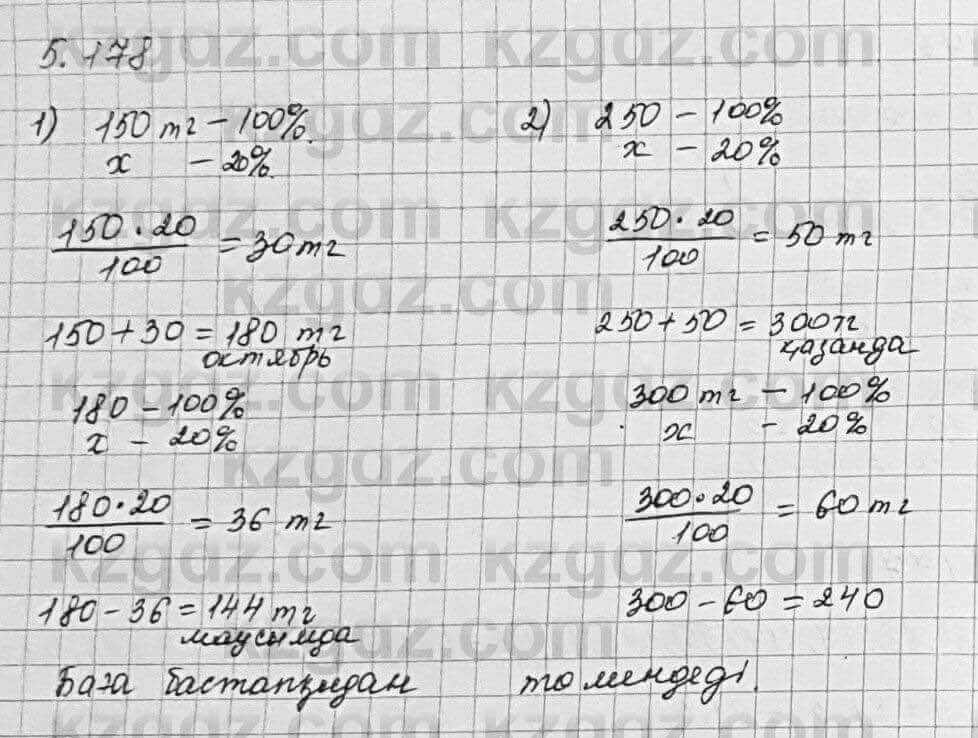 5.178
1) 150 тг - 100%.
х - 20%.
150 · 20 / 100 = 30 тг
150 + 30 = 180 тг
октябрь
180 - 100%
х - 20%
180 · 20 / 100 = 36 тг
180 - 36 = 144 тг
маусымда
2) 250 - 100%
х - 20%
250 · 20 / 100 = 50 тг
250 + 50 = 300тг
қазанда
300 тг - 100%
х - 20%
300 · 20 / 100 = 60 тг
300 - 60 = 240
Баға бастапқыдан төмендеді.
kzgdz.com